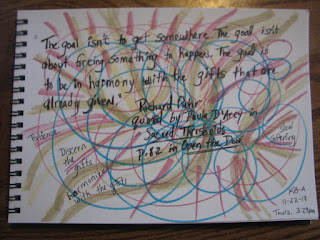 "The goal isn't to get somewhere. The goal isn't
about forcing something to happen. The goal is
to be in harmony with the gifts that are
already given."
Richard Rohr
quoted by Paula D'Arcy in
Sacred Thresholds
p.82 in Open the Door
Discern
the gifts
Harmonize
with the gifts
KB-A
11-22-18
Thurs.